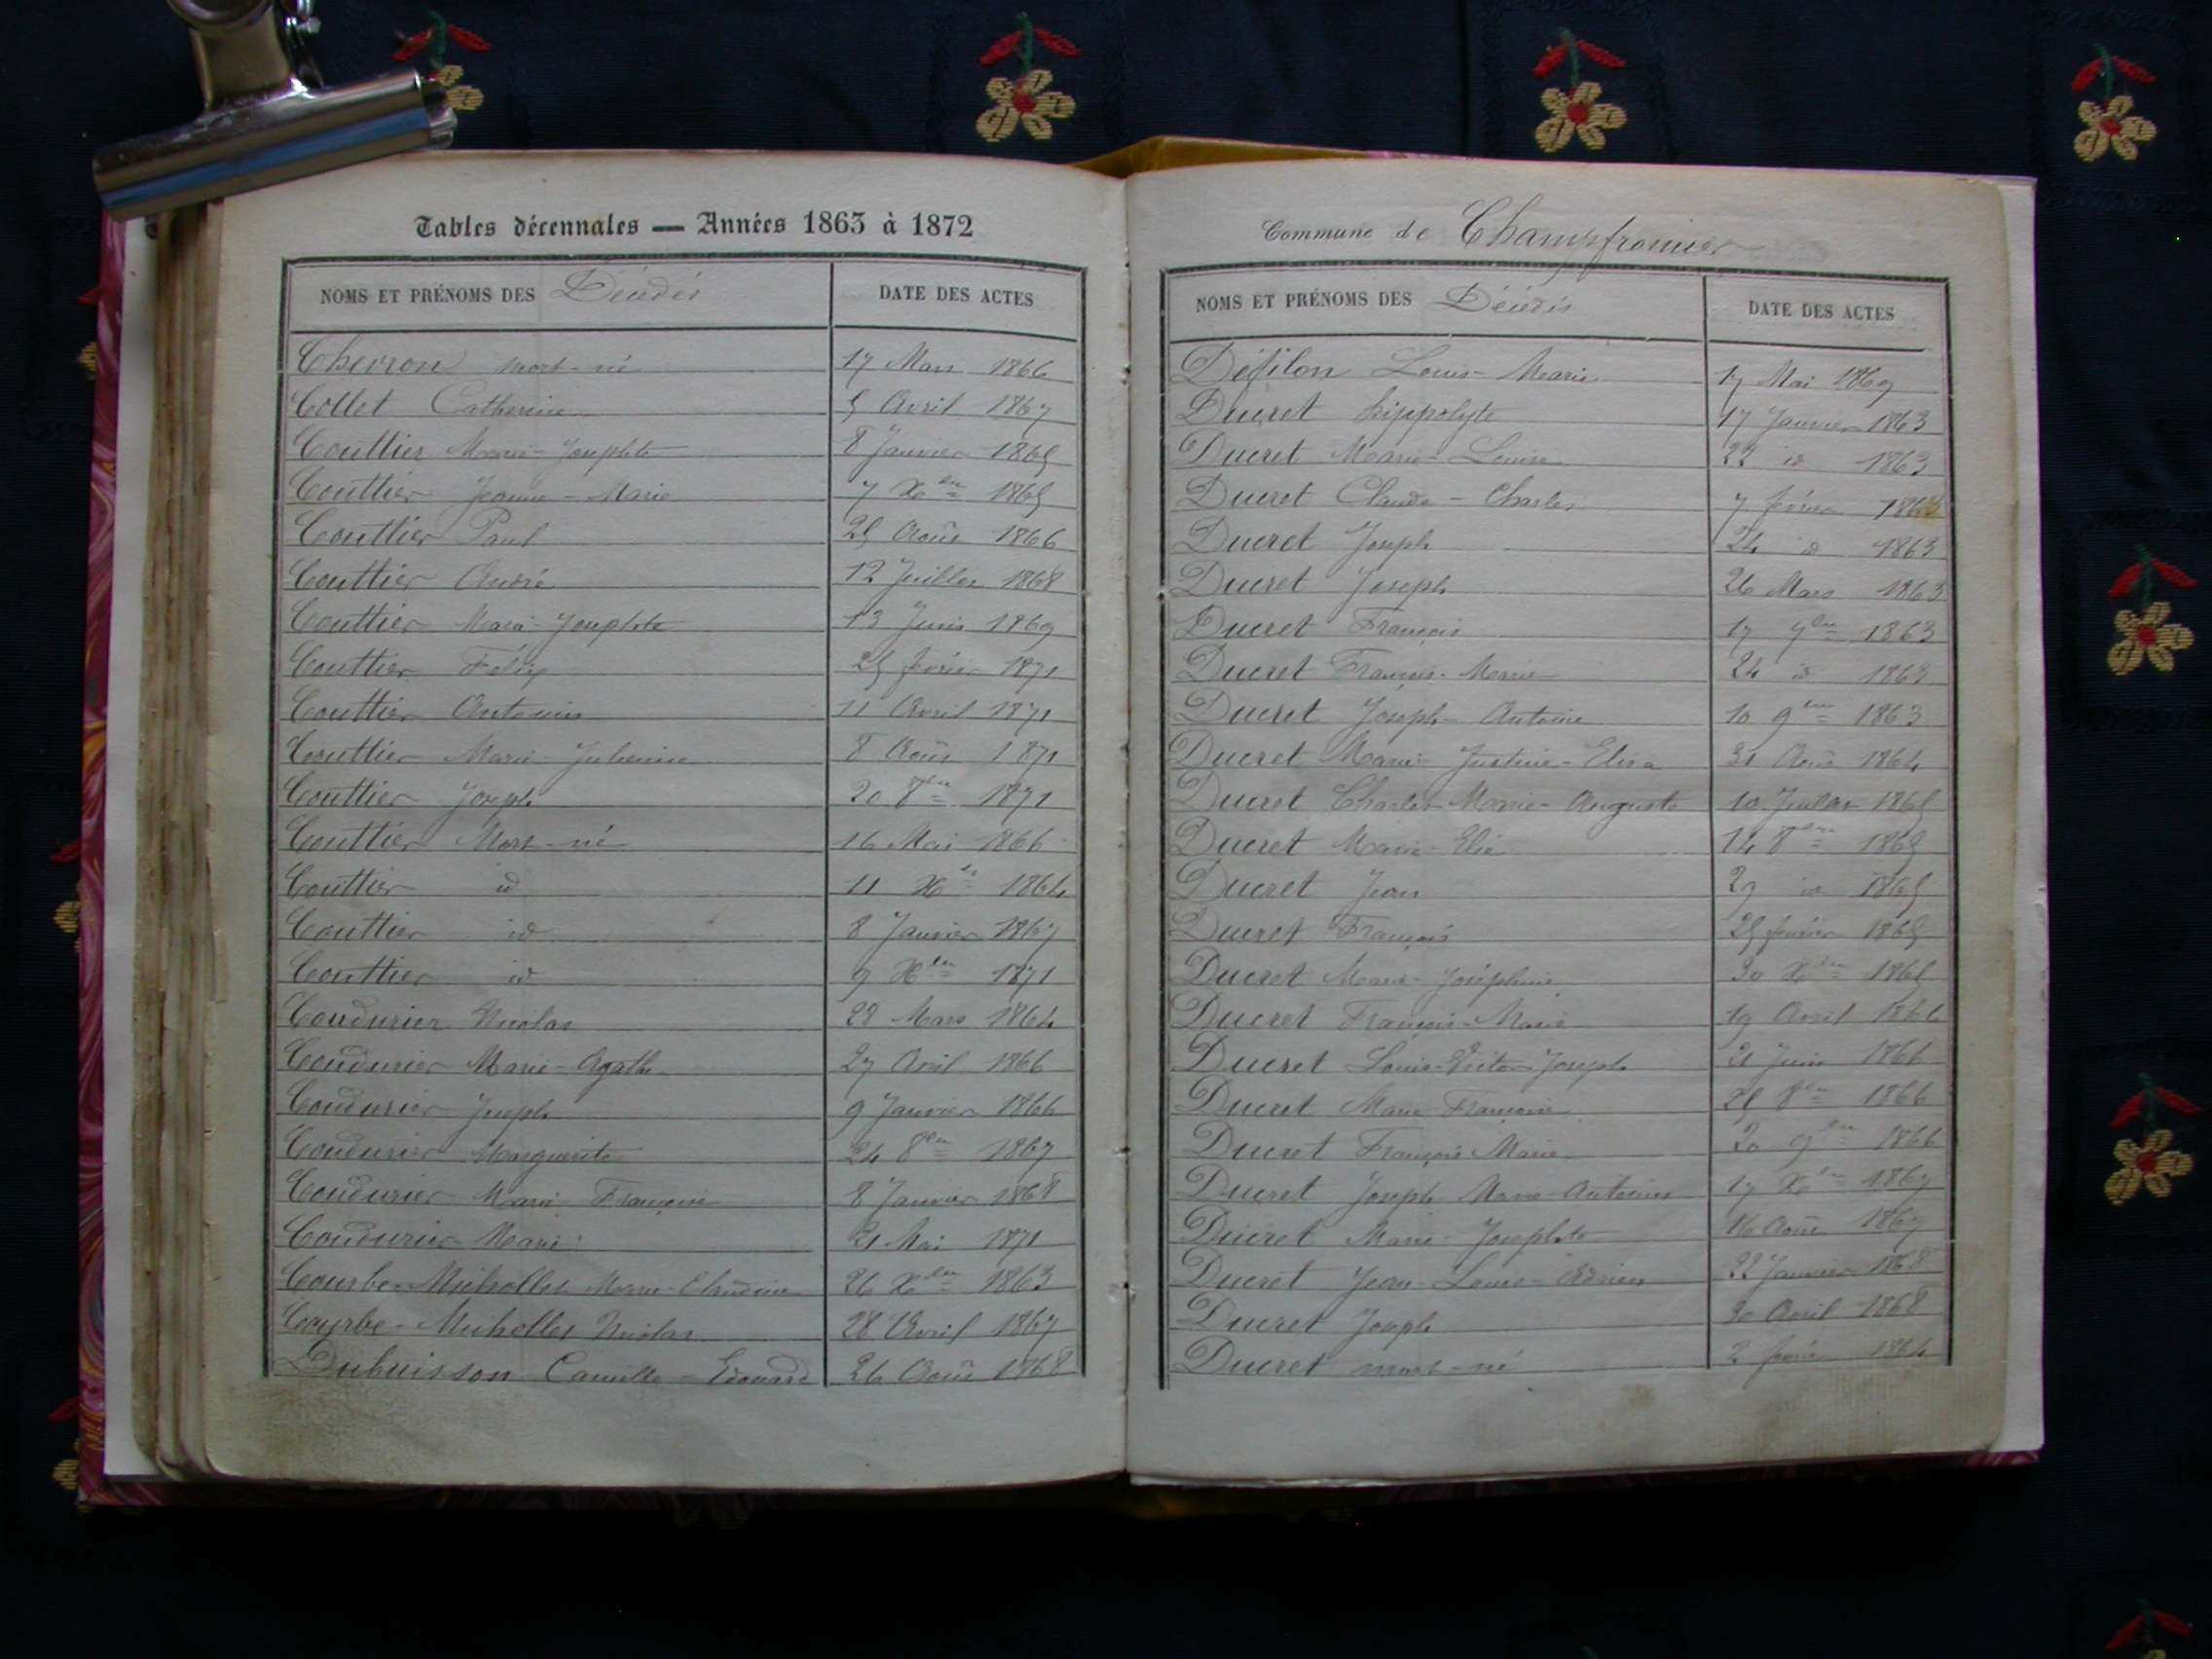 Tables décennales — Années 1863 à 1872
NOMS ET PRÉNOMS DES Décédés DATE DES ACTES
Chevron mort-né 17 Mars 1866
Collet Catherine 5 Avril 1867
Couttier Marie-Josephte 8 Janvier 1865
Couttier Jeanne-Marie 7 Xbre 1865
Couttier Paul 25 Août 1866
Couttier André 12 Juillet 1868
Couttier Marie-Josephte 13 Juin 1869
Couttier Félix 25 février 1871
Couttier Antonin 11 Avril 1871
Couttier Marie-Julienne 8 Août 1871
Couttier Joseph 20 8bre 1871
Couttier Mort-né 16 Mai 1866
Couttier id 11 Xbre 1864
Couttier id 8 Janvier 1867
Couttier id 9 Xbre 1871
Coudurier Nicolas 22 Mars 1864
Coudurier Marie-Agathe 27 Avril 1866
Coudurier Joseph 9 Janvier 1866
Coudurier Marguerite 24 8bre 1867
Coudurier Marie Françoise 8 Janvier 1868
Coudurier Marie 21 Mai 1871
Courbe-Michollet Marie-Claudine 26 Xbre 1863
Courbe-Michollet Nicolas 28 Avril 1867
Dubuisson Camille-Edouard 26 Août 1868
Commune de Champfromier
NOMS ET PRÉNOMS DES Décédés DATE DES ACTES
Défilon Louis-Marie 17 Mai 1869
Ducret hippolyte 17 Janvier 1863
Ducret Marie-Louise 22 id 1863
Ducret Claude-Charles 7 février 1863
Ducret Joseph 24 id 1863
Ducret Joseph 26 Mars 1863
Ducret François 17 7bre 1863
Ducret François-Marie 24 id 1863
Ducret Joseph-Antoine 10 9bre 1863
Ducret Marie-Justine-Elisa 31 Août 1864
Ducret Charles-Marie-Auguste 10 Juillet 1865
Ducret Marie-Elie 14 8bre 1865
Ducret Jean 29 id 1865
Ducret François 25 février 1865
Ducret Marie-Joséphine 30 Xbre 1865
Ducret François-Marie 19 Avril 1866
Ducret Louis-Victor-Joseph 21 Juin 1866
Ducret Marie Françoise 25 8bre 1866
Ducret François Marie 20 9bre 1866
Ducret Joseph Marie-Antonin 17 Xbre 1867
Ducret Marie-Josephte 16 Août 1867
Ducret Jean-Louis-Adrien 22 Janvier 1868
Ducret Joseph 30 Avril 1868
Ducret mort-né 2 février 1864